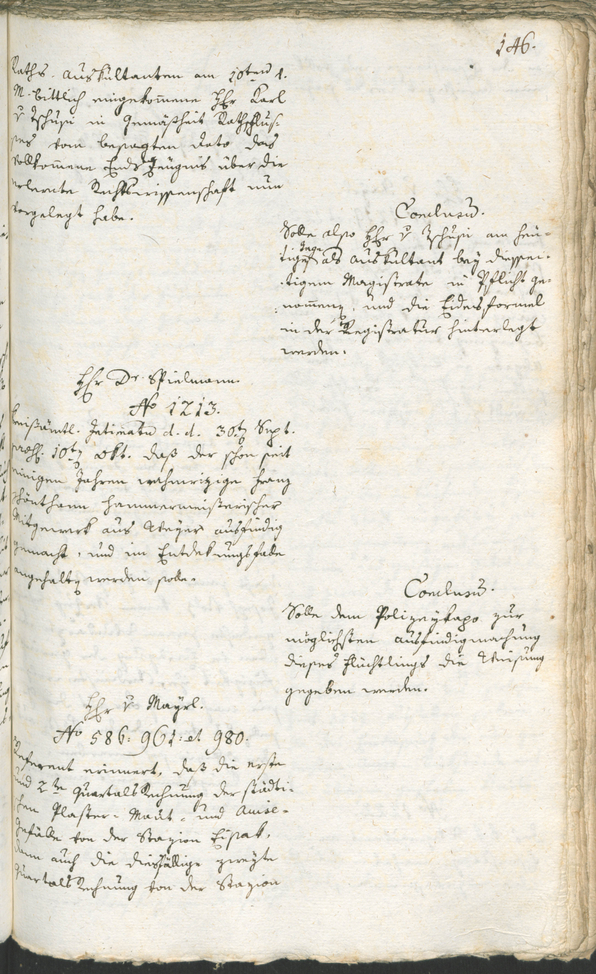 146.
Raths. Auskultanten am 10ten d.
M. bittlich eingekommene Hr Karl
v Tschusi in Gemäßheit Rathschlus-
ses vom besagten Dato das
vollkomene Ends Zeugnis über die
erlernte Rechtswissenschaft nun
vorgelegt habe.
Conclusum.
Solle also Hr v Tschusi am heu-
tigen Tage als Auskultant bey diessei-
tigem Magistrate in Pflicht ge-
nommen, und die Eidesformel
in der Registratur hinterlegt
werden.
Hr Dr. Spielmann.
No 1213.
Kreisämtl. Intimatum d. d. 30ten Sept.
10ten Okt. daß der schon seit
einigen Jahren wahnwitzige Franz
Schönthann hammermeisterischer
Mitgewerk aus Weyer ausfindig
gemacht, und im Entdekungsfalle
angehalten werden solle.
Conclusum.
Solle dem Polizeykapo zur
möglichsten Ausfindigmachung
dieses Flüchtlings die Weisung
gegeben werden.
Hr v Mayrl.
No 586. 961. et 980.
Referent erinnert, daß die erste
und 2te Quartals Rechnung der städti-
schen Plaster- Maut- und Avise-
gefälle von der Stazion Eisak,
dann auch die diesfällige zweyte
Quartals Rechnung von der Stazion